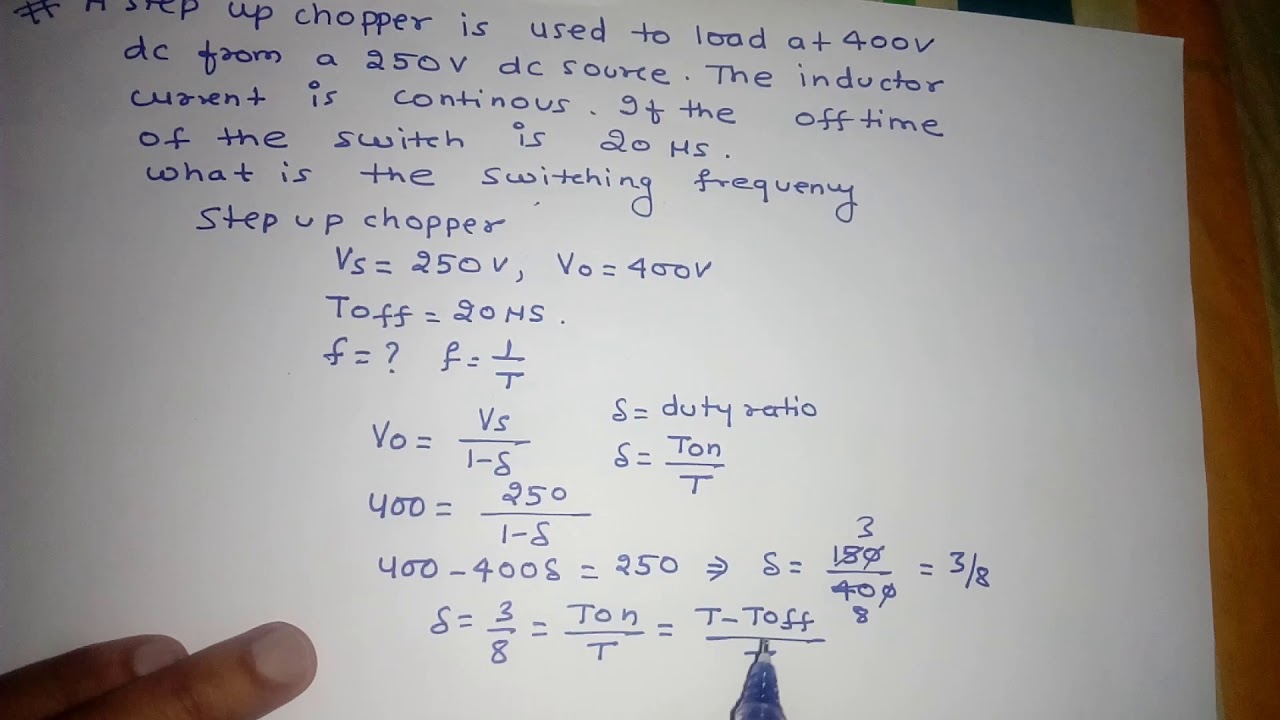 # A step up chopper is used to load at 400V
dc from a 250V dc source. The inductor
current is continous. If the off time
of the switch is 20 μs.
what is the switching frequency
Step up chopper
Vs = 250V, Vo = 400V
Toff = 20 μS.
f = ? f = 1/T
Vo = Vs/1-δ δ = duty ratio
δ = Ton/T
400 = 250/1-δ
400 - 400δ = 250 ⇒ δ = 150/400 = 3/8
3
8
δ = 3/8 = Ton/T = T-Toff/T